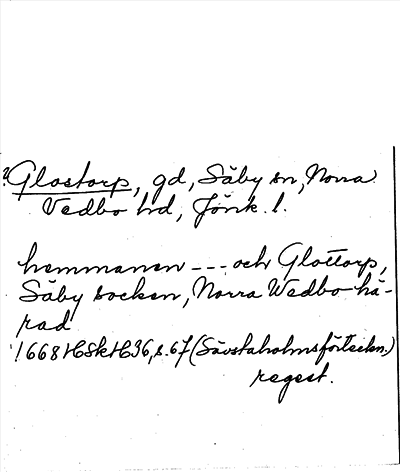 ?Glostorp, gd, Säby sn, Norra
Vedbo hd, Jönk. l.
hemmanen --- och Glottorp,
Säby socken, Norra Wedbo hä-
rad
1668 HSkH 36, s. 67 (Sävstaholmsförteckn.)
regest.